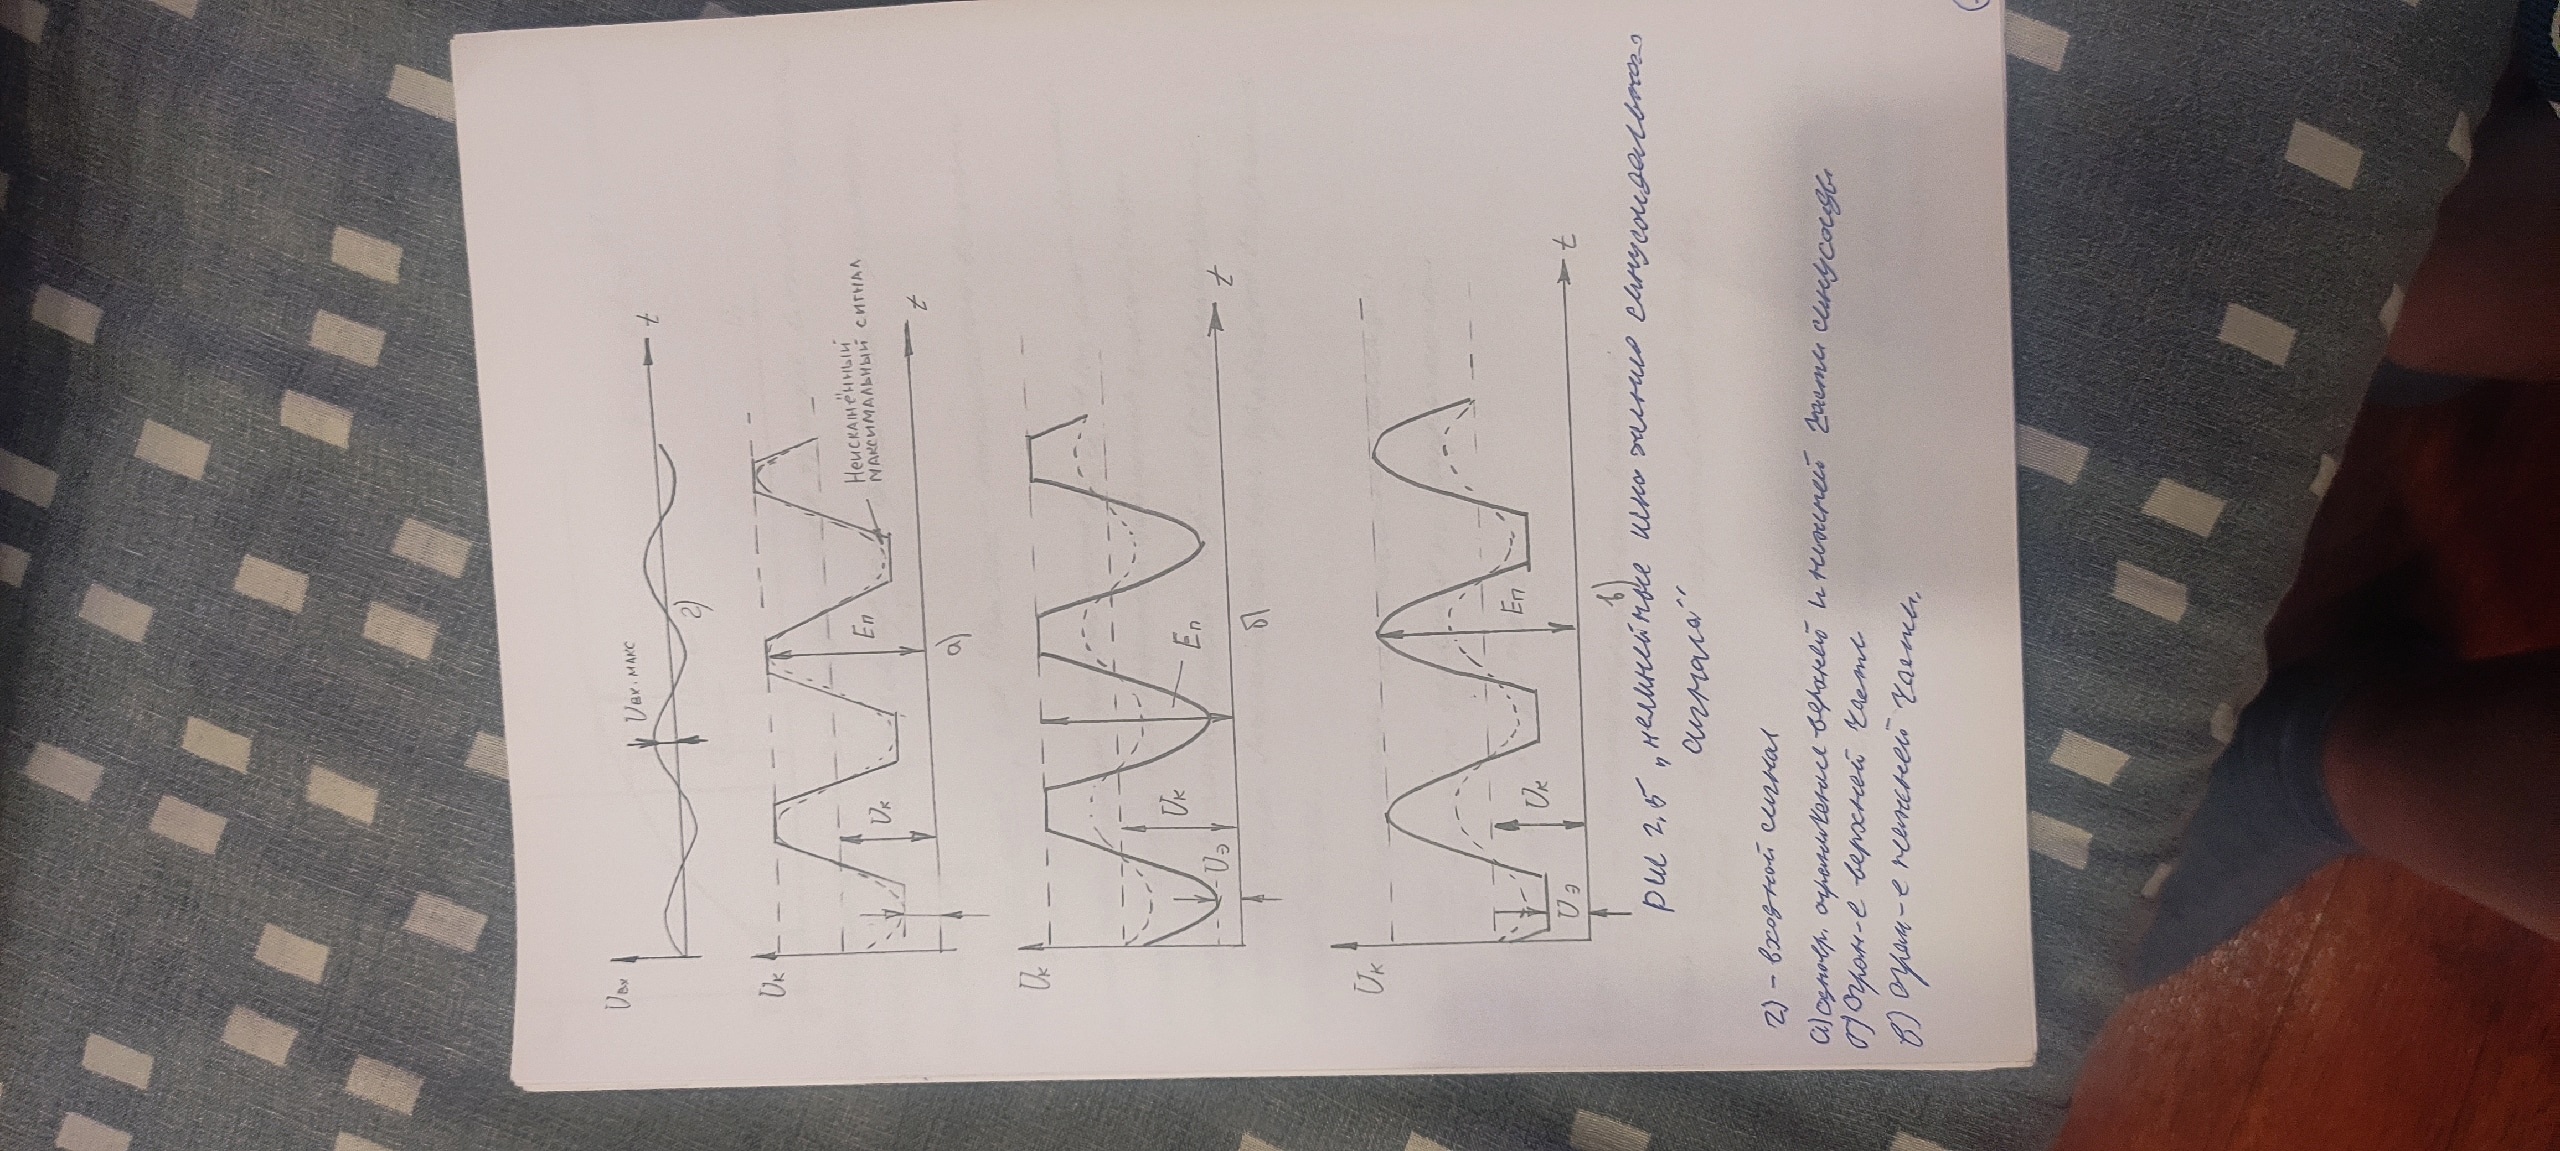 Uвх
Uвх.макс
t
г)
Uк
Uк
Eп
Неискажённый
максимальный сигнал
t
а)
Uк
Uэ
Uк
Eп
t
б)
Uк
Uэ
Uк
Eп
t
в)
Рис 2,5 „нелинейные искажения синусоидального
сигнала"
г) - входной сигнал
а) одновр. ограничение верхней и нижней части синусоиды
б) огран-е верхней части
в) огран-е нижней части.